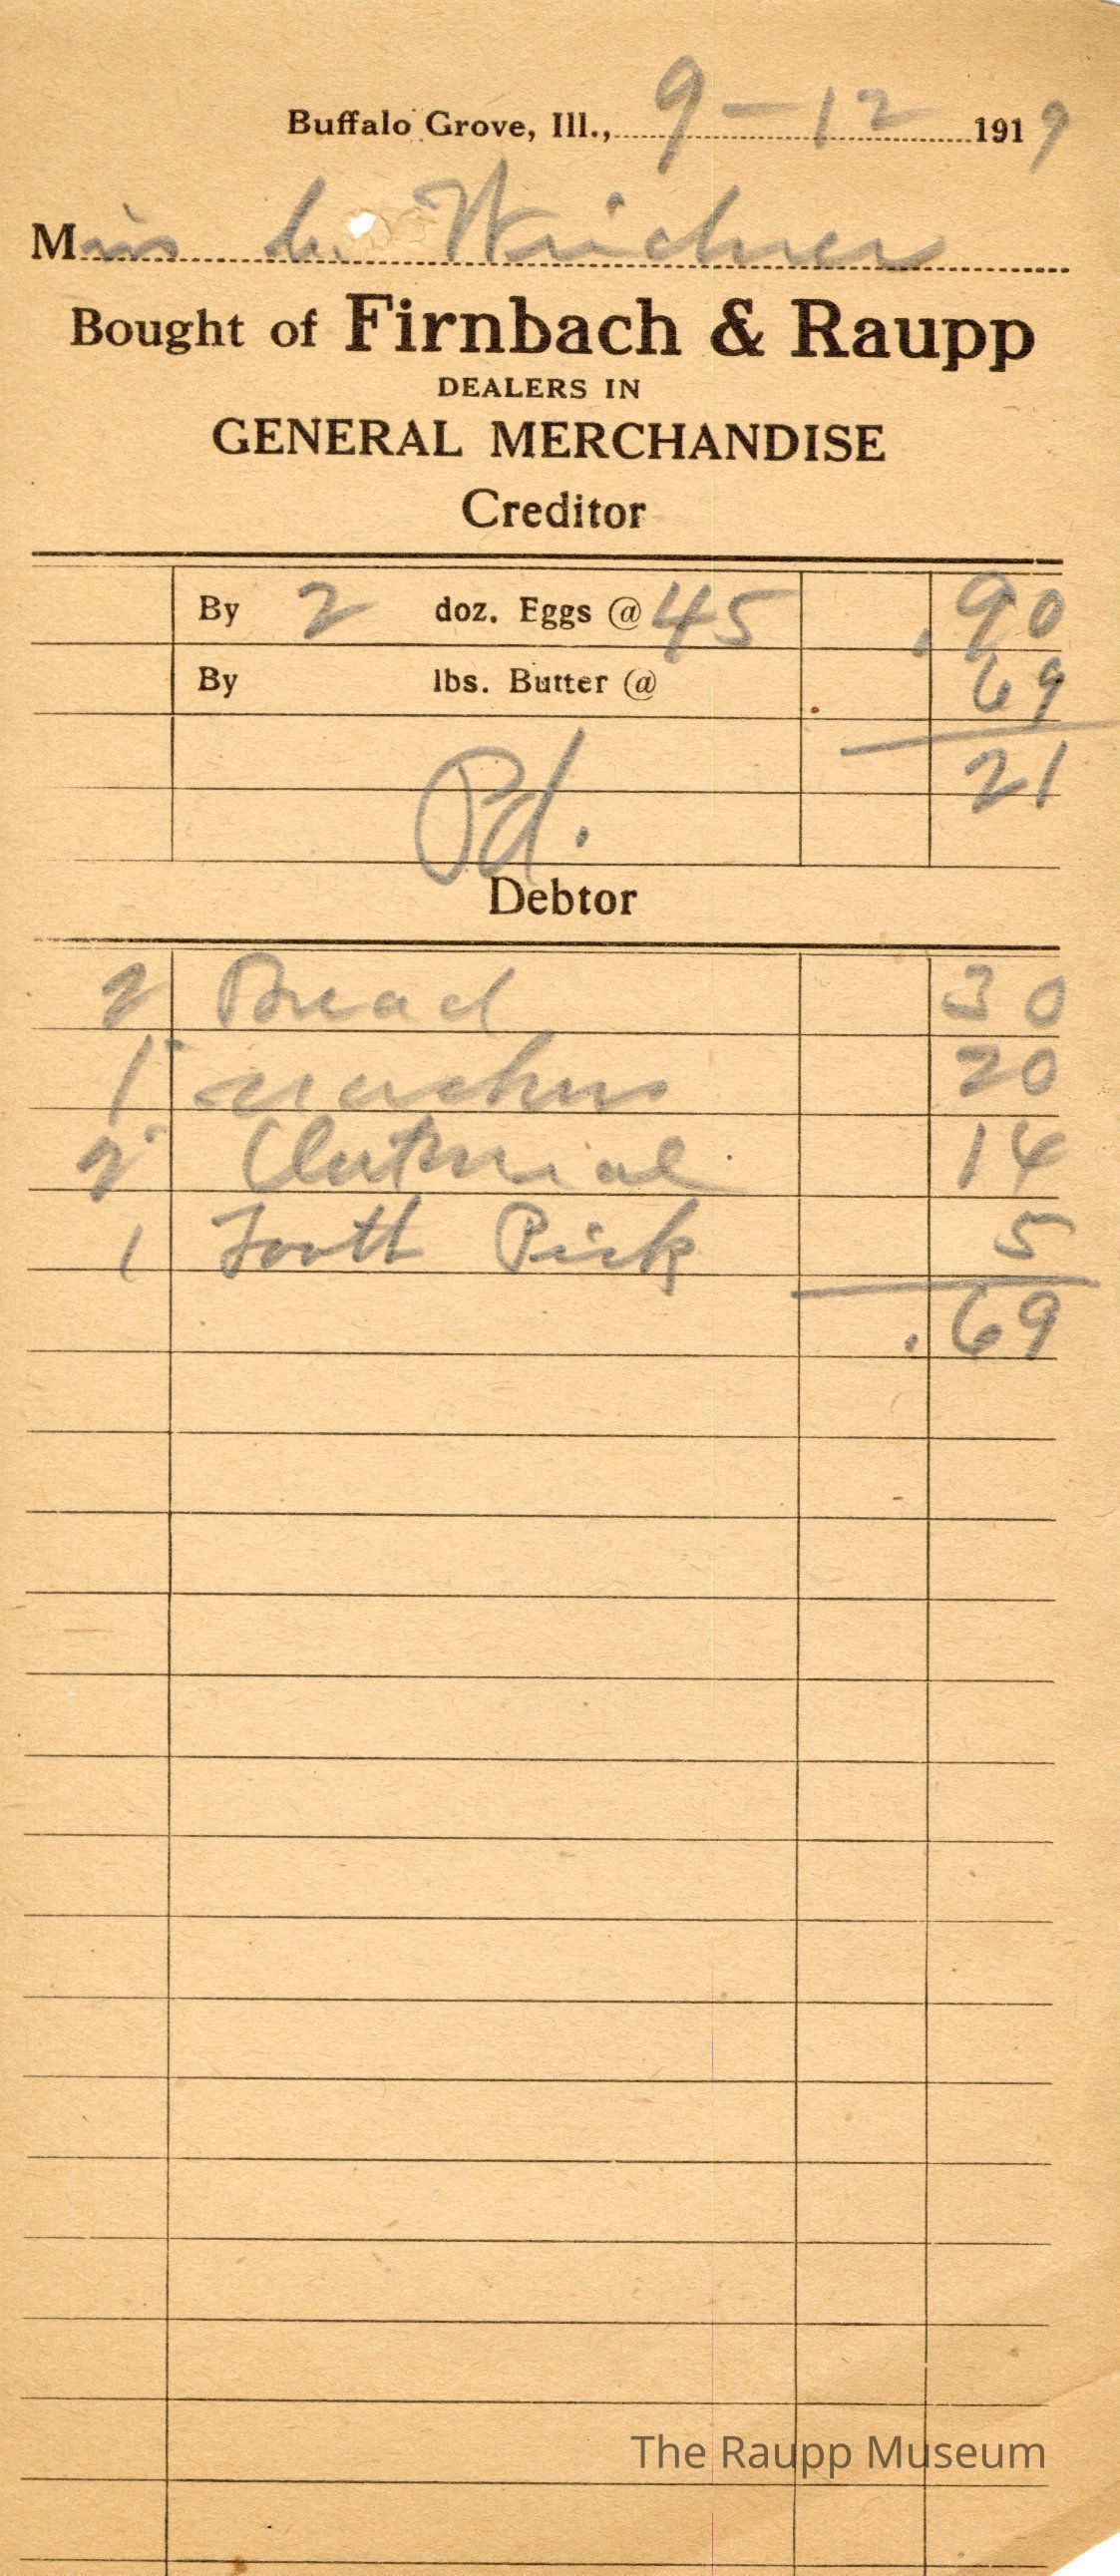 Buffalo Grove, Ill., 9-12 1919
Miss Weidner
Bought of Firnbach & Raupp
DEALERS IN
GENERAL MERCHANDISE
Creditor
By 2 doz. Eggs @ 45 .90
By lbs. Butter @ 69
21
Pd.
Debtor
2 Bread 30
1 20
2 Oatmeal 14
1 Tooth Pick 5
.69
The Raupp Museum